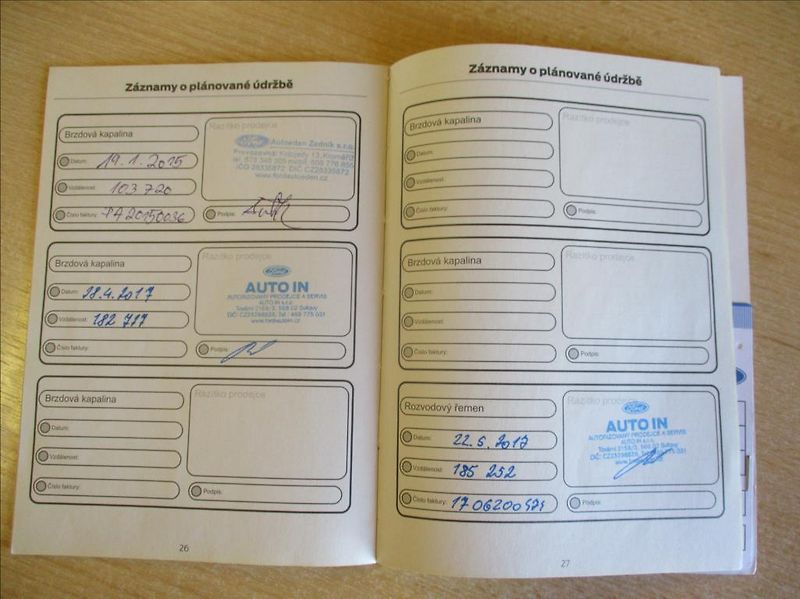 Záznamy o plánované údržbě
Brzdová kapalina
Razítko prodejce
Ford Autoeden Zedník s.r.o.
Datum: 19.1.2015
Vzdálenost: 103 720
IČO 28335872 DIČ CZ28335872
www.fordautoeden.cz
Číslo faktury:
Podpis:
Brzdová kapalina
Razítko prodejce
Ford
AUTO IN
AUTORIZOVANÝ PRODEJCE A SERVIS
AUTO IN s.r.o.
Datum: 28.4.2017
Vzdálenost: 182 777
Číslo faktury:
Podpis:
Brzdová kapalina
Razítko prodejce
Datum:
Vzdálenost:
Číslo faktury:
Podpis:
26
Záznamy o plánované údržbě
Brzdová kapalina
Razítko prodejce
Datum:
Vzdálenost:
Číslo faktury:
Podpis:
Brzdová kapalina
Razítko prodejce
Datum:
Vzdálenost:
Číslo faktury:
Podpis:
Rozvodový řemen
Razítko prodejce
Ford
AUTO IN
AUTORIZOVANÝ PRODEJCE A SERVIS
AUTO IN s.r.o.
Datum: 22.5.2017
Vzdálenost: 185 252
Číslo faktury:
Podpis:
27